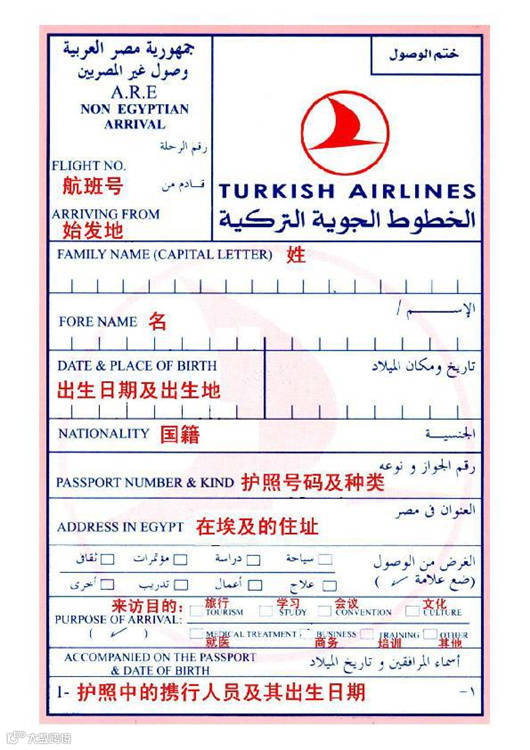 جمهورية مصر العربية
وصول غير المصريين
A.R.E
NON EGYPTIAN
ARRIVAL
ختم الوصول
رقم الرحلة
FLIGHT NO.
航班号
قادم من
ARRIVING FROM
始发地
TURKISH AIRLINES
الخطوط الجوية التركية
FAMILY NAME (CAPITAL LETTER) 姓
الإسم /
FORE NAME 名
DATE & PLACE OF BIRTH تاريخ ومكان الميلاد
出生日期及出生地
NATIONALITY 国籍 الجنسية
رقم الجواز و نوعه
PASSPORT NUMBER & KIND 护照号码及种类
العنوان فى مصر
ADDRESS IN EGYPT 在埃及的住址
الغرض من الوصول سياحة دراسة مؤتمرات ثقافى
(ضع علامة ✓) علاج أعمال تدريب أخرى
来访目的: 旅行 学习 会议 文化
PURPOSE OF ARRIVAL: TOURISM STUDY CONVENTION CULTURE
( ✓ ) MEDICAL TREATMENT BUSINESS TRAINING OTHER
就医 商务 培训 其他
ACCOMPANIED ON THE PASSPORT
& DATE OF BIRTH
أسماء المرافقين و تاريخ الميلاد
1- 护照中的携行人员及其出生日期 ١-